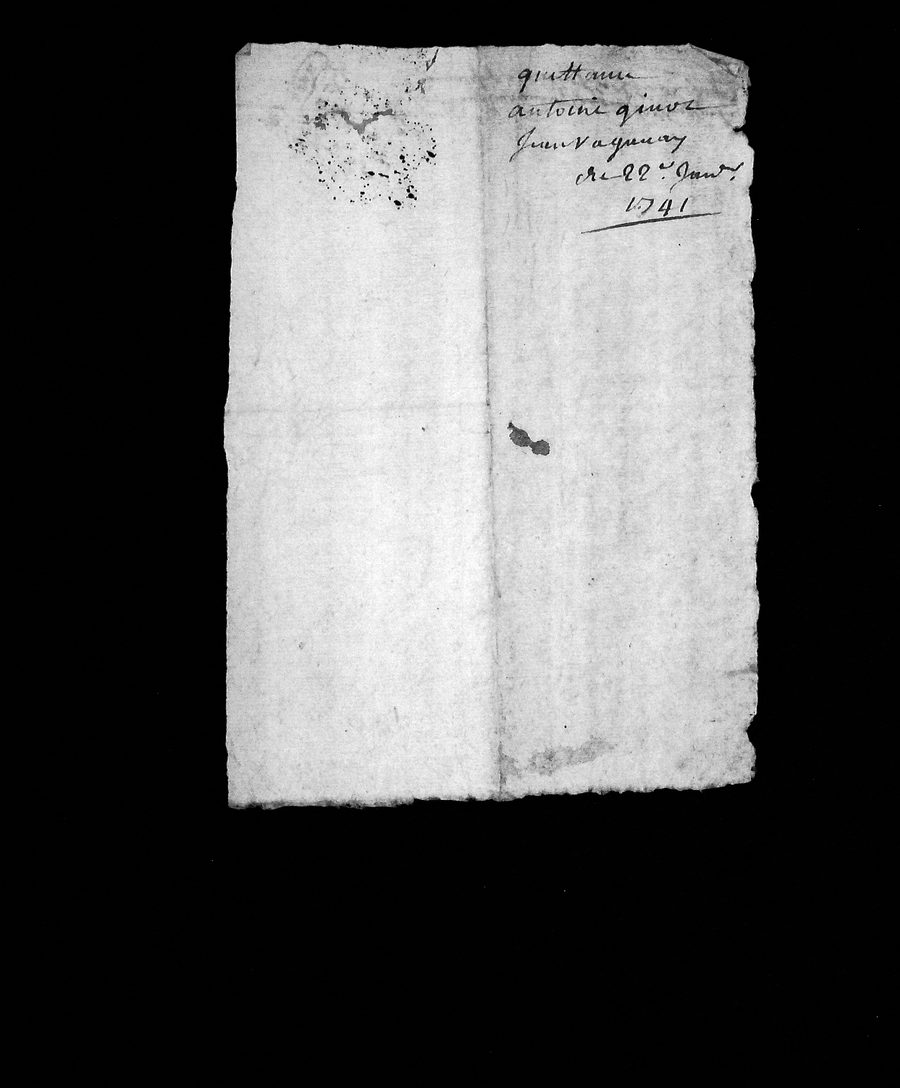 quittance
antoine ginos
Jean vagnenay
du 22e Janvr.
1741